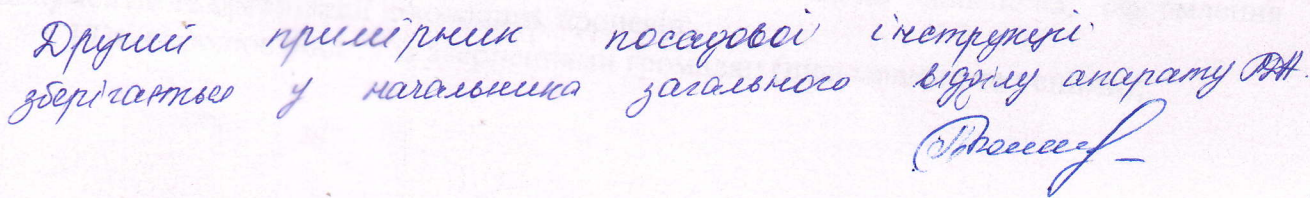 Другий примірник посадової інструкції
зберігається у начальника загального відділу апарату